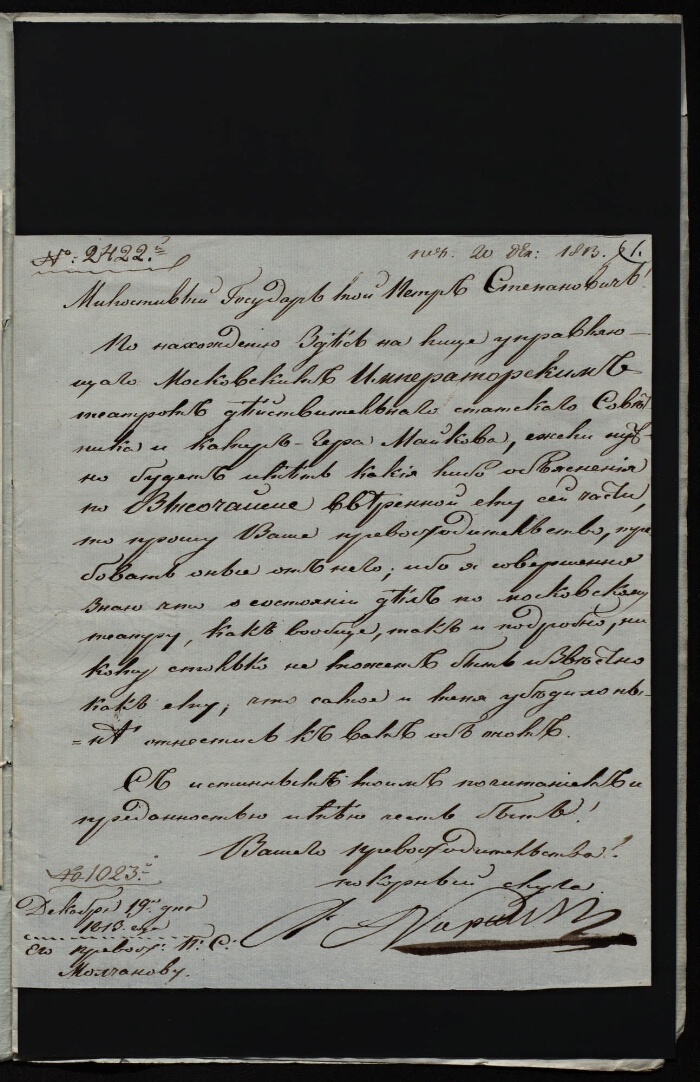 №: 2422.й
пол. 20 дек: 1813. 61.
Милостивый Государь мой Петръ Степановичь!
По нахожденію здѣсь на лице управляю-
щаго Московскимъ Императорскимъ
театромъ дѣйствительнаго статскаго Совѣт-
ника и камеръ-гера Майкова, ежели нуж-
но будетъ имѣть какія либо объясненія
по Высочайше ввѣренной ему сей части,
то прошу Ваше превосходительство, тре-
бовать оные отъ него; ибо я совершенно
знаю что о состояніи дѣлъ по московскому
театру, какъ вообще, такъ и подробно, ни
кому столько не можетъ быть извѣстно
какъ ему; что самое и меня убѣдило ны-
=нѣ отнестись къ вамъ объ томъ.
Съ истиннымъ моимъ почитаніемъ и
преданностью имѣю честь быть!
Вашего превосходительства!
покорный слуга.
А. Нарышкинъ
№ 1023.й
Декабря 19го дня
1813. года
Его превосх: П: С:
Молчанову.